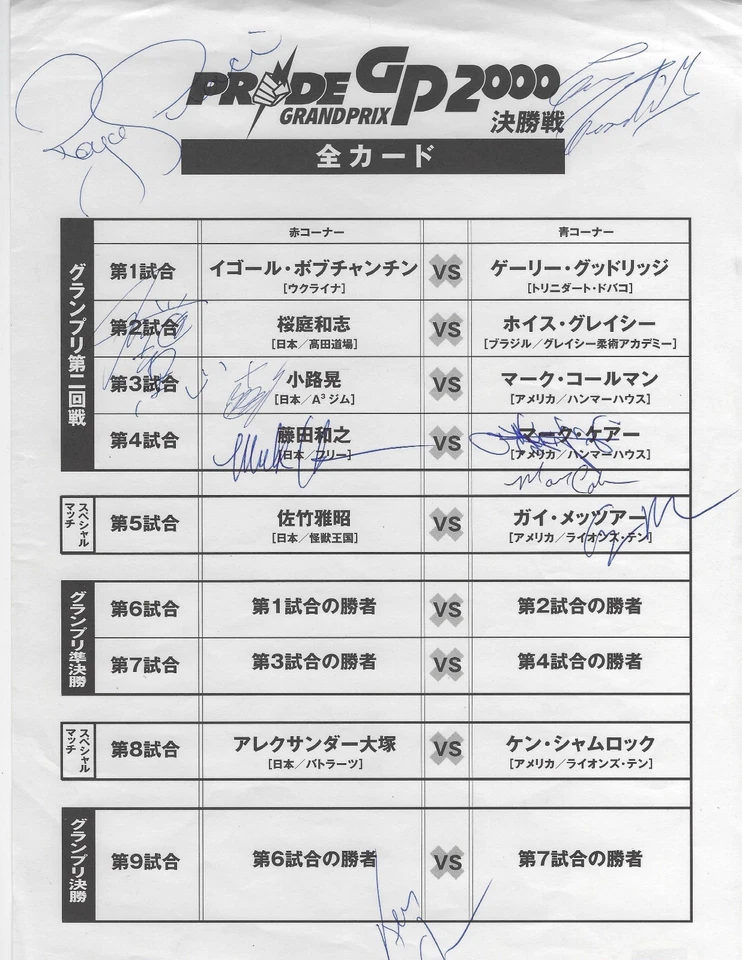 PRIDE GP 2000
GRANDPRIX
決勝戦
全カード
赤コーナー 青コーナー
グランプリ第二回戦
第1試合 イゴール・ボブチャンチン VS ゲーリー・グッドリッジ
[ウクライナ] [トリニダート・ドバコ]
第2試合 桜庭和志 VS ホイス・グレイシー
[日本／高田道場] [ブラジル／グレイシー柔術アカデミー]
第3試合 小路晃 VS マーク・コールマン
[日本／A³ジム] [アメリカ／ハンマーハウス]
第4試合 藤田和之 VS マーク・ケアー
[日本／フリー] [アメリカ／ハンマーハウス]
スペシャルマッチ
第5試合 佐竹雅昭 VS ガイ・メッツアー
[日本／怪獣王国] [アメリカ／ライオンズ・デン]
グランプリ準決勝
第6試合 第1試合の勝者 VS 第2試合の勝者
第7試合 第3試合の勝者 VS 第4試合の勝者
スペシャルマッチ
第8試合 アレクサンダー大塚 VS ケン・シャムロック
[日本／バトラーツ] [アメリカ／ライオンズ・デン]
グランプリ決勝
第9試合 第6試合の勝者 VS 第7試合の勝者
Royce
Ken